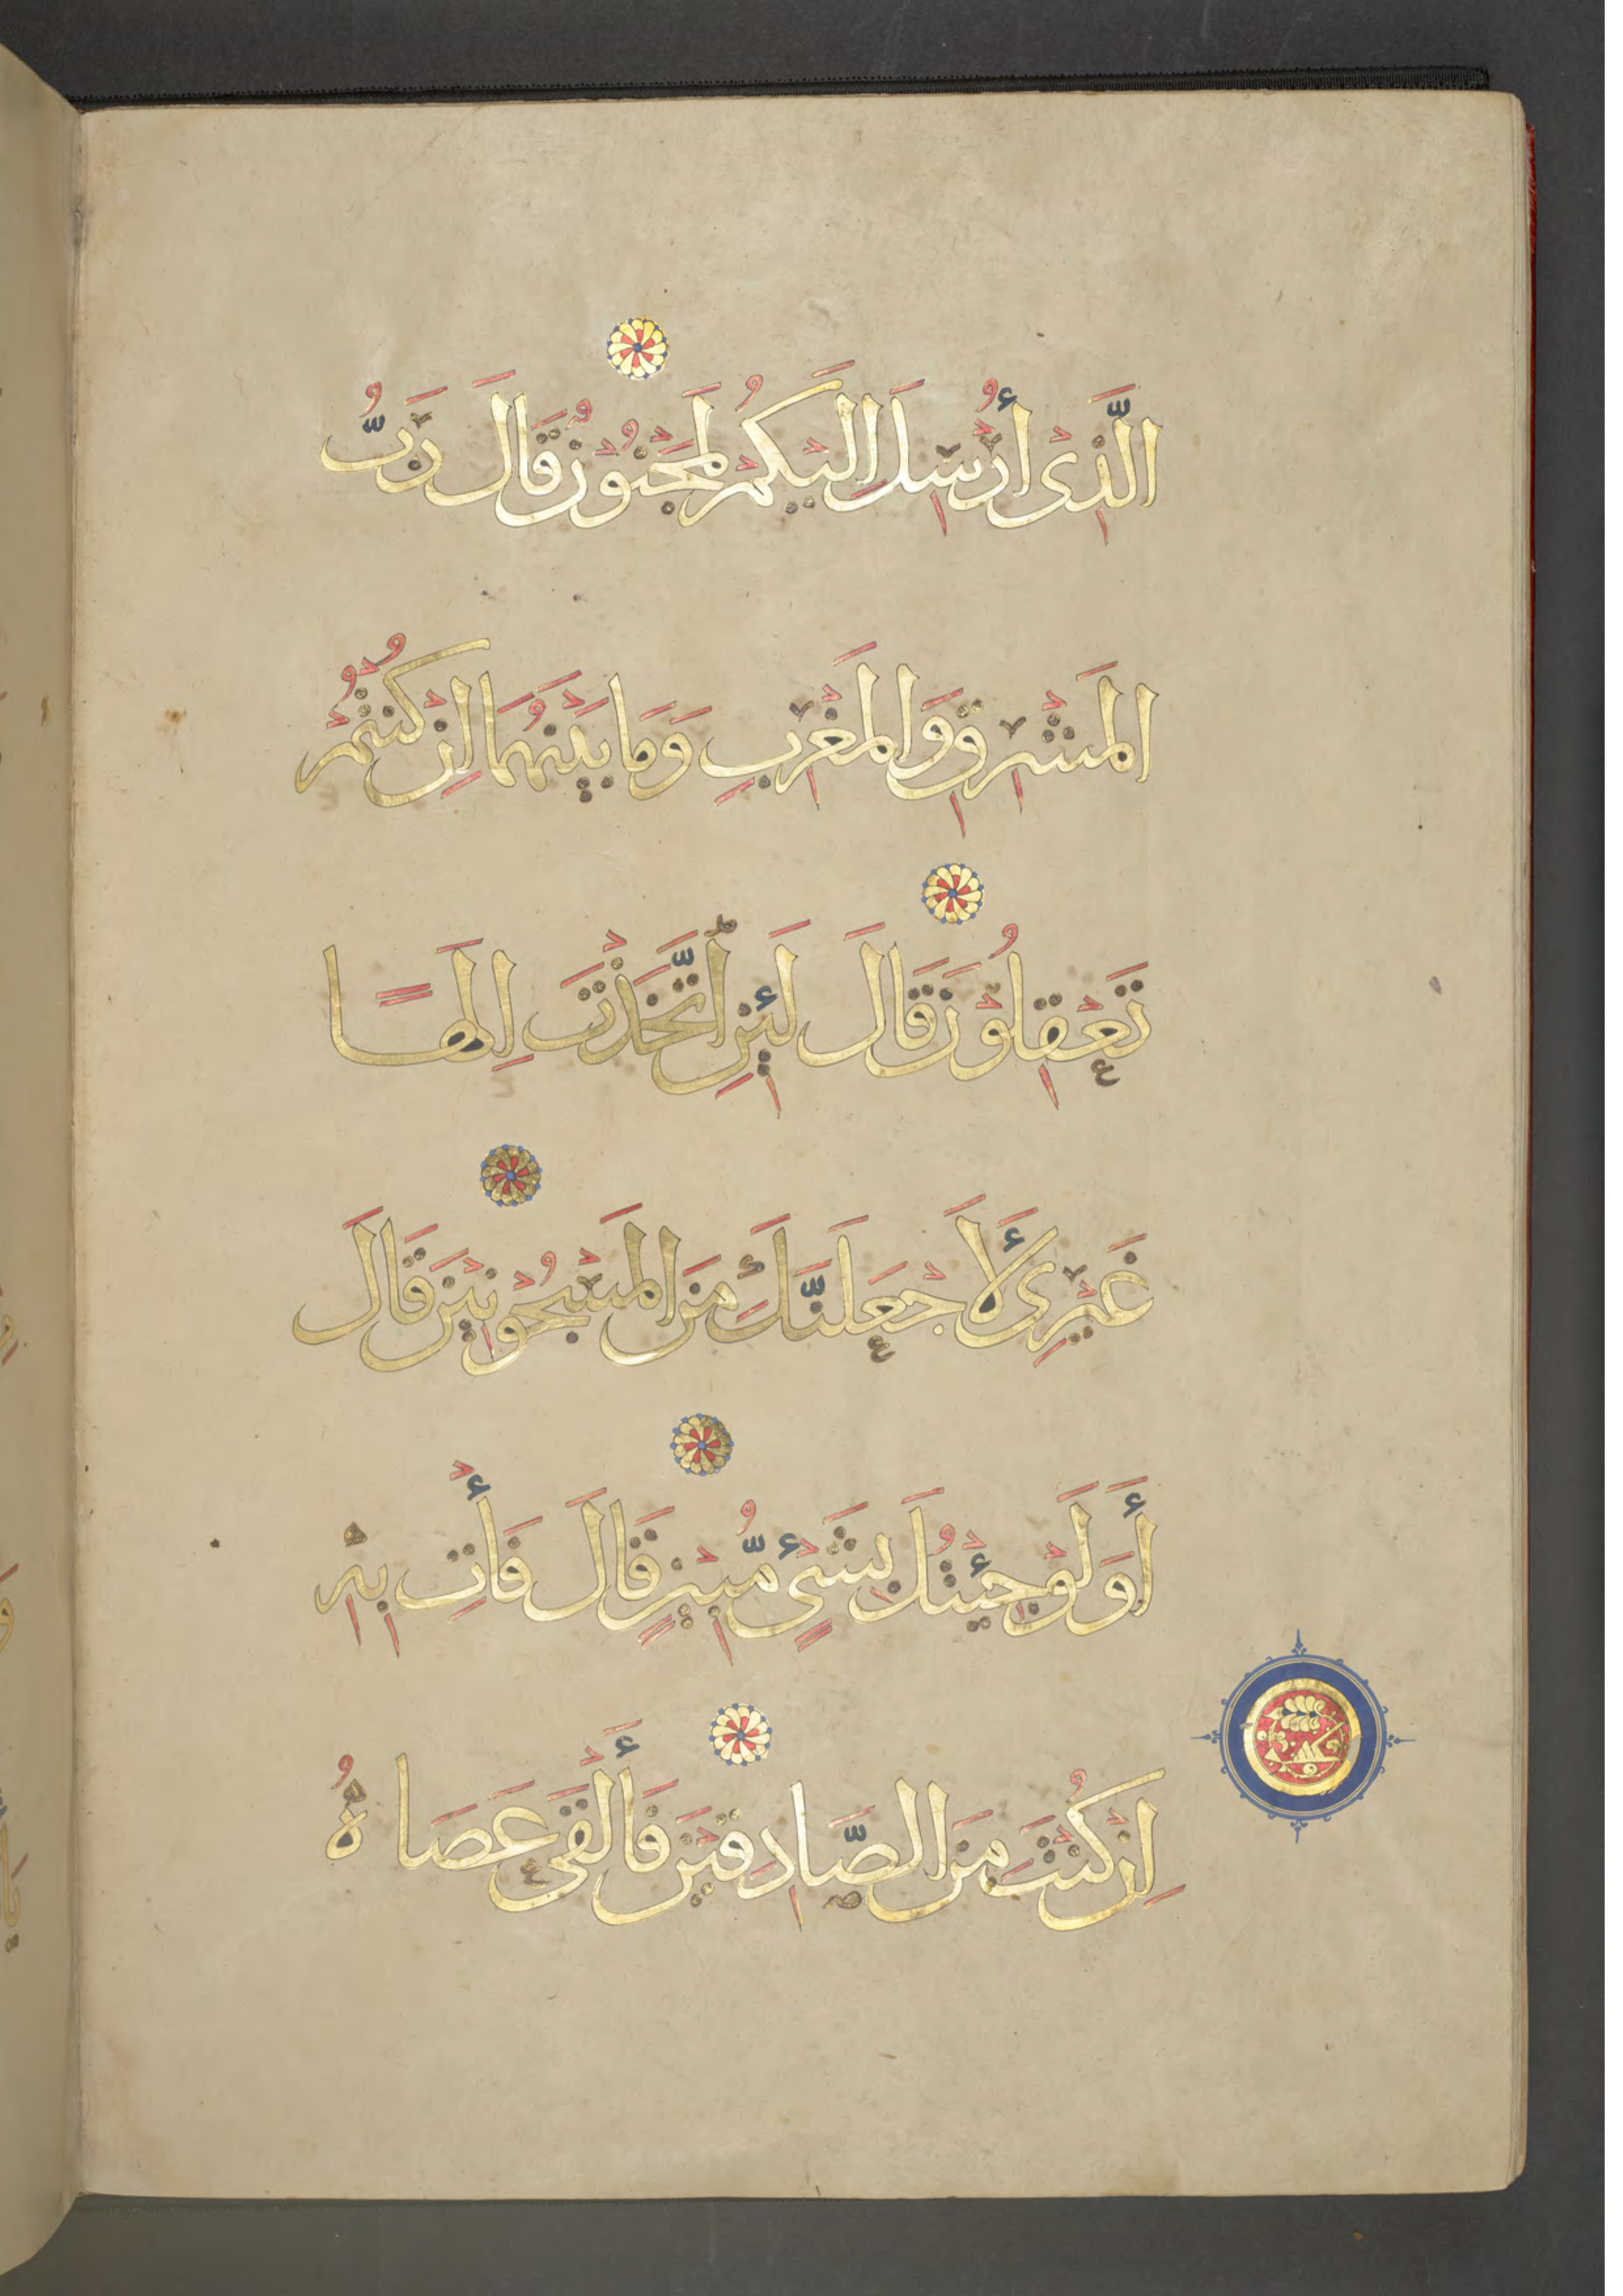 الَّذِىْ أُرْسِلَ اِلَيْكُمْ لَمَجْنُوْنٌ قَالَ رَبُّ
الْمَشْرِقِ وَالْمَغْرِبِ وَمَا بَيْنَهُمَا اِنْ كُنْتُمْ
تَعْقِلُوْنَ قَالَ لَئِنِ اتَّخَذْتَ اِلٰهًا
غَيْرِى لَأَجْعَلَنَّكَ مِنَ الْمَسْجُوْنِيْنَ قَالَ
أَوَلَوْ جِئْتُكَ بِشَىْءٍ مُّبِيْنٍ قَالَ فَأْتِ بِهِ
اِنْ كُنْتَ مِنَ الصَّادِقِيْنَ فَأَلْقَى عَصَاهُ